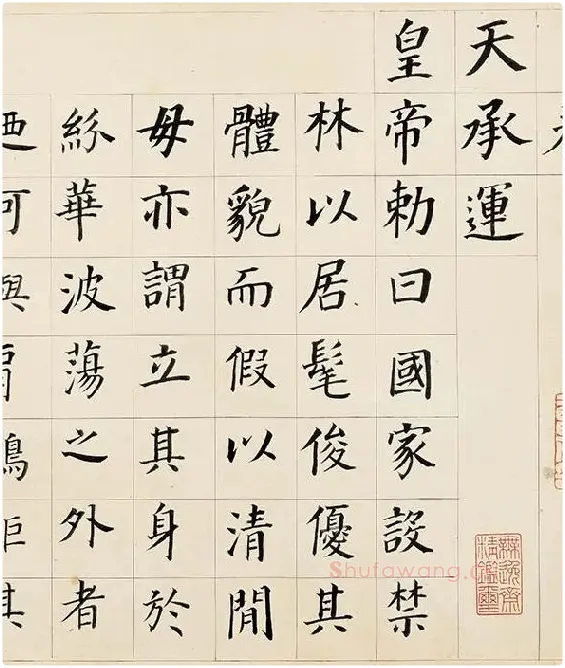 天承運
皇帝勅曰國家設禁
林以居髦俊優其
體貌而假以清閒
毋亦謂立其身於
紛華波蕩之外者
Shufawang.c
無逸齋精鑑璽